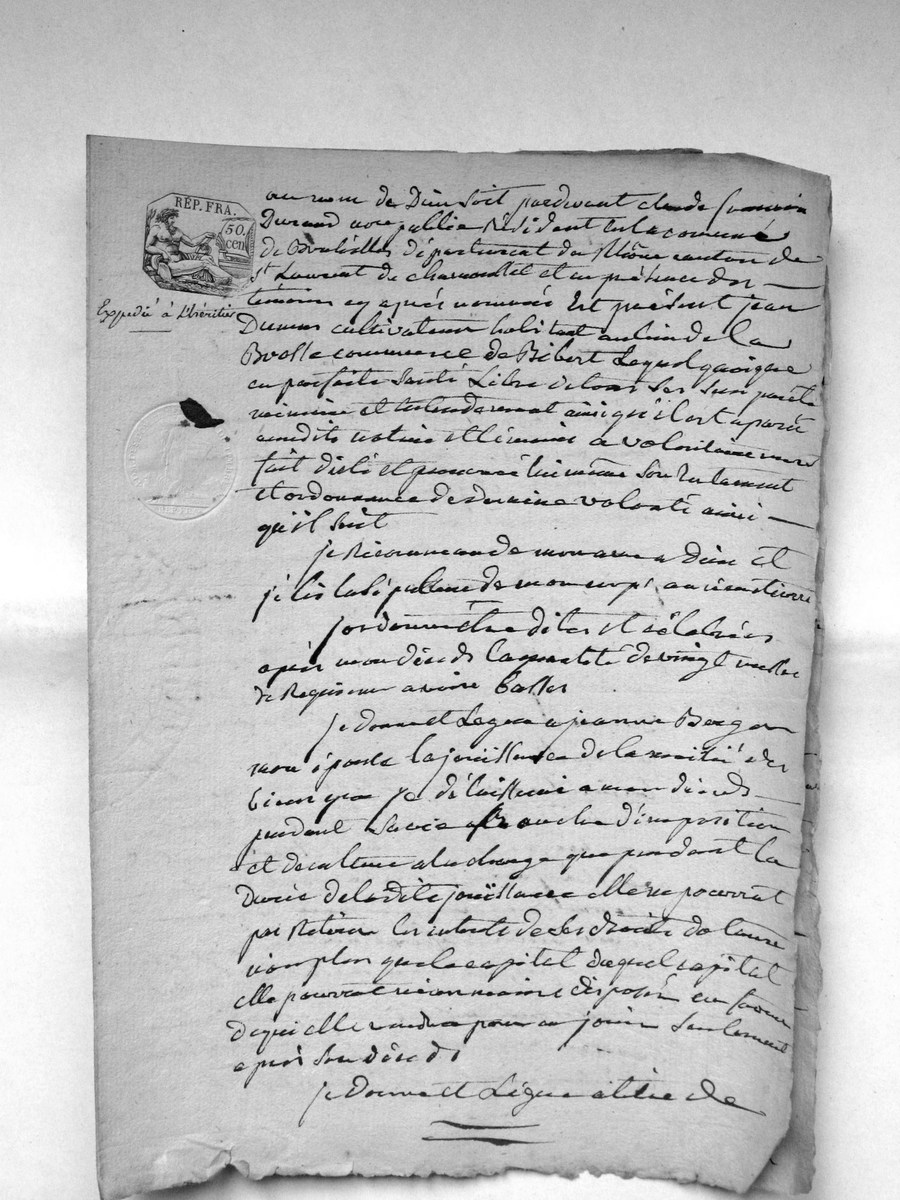 RÉP. FRA.
50.
cen.
Expédié à L'héritier
au nom de Dieu Soit pardevant claude francois
Durand no.re public Résident en la commune
de Brulliolles département du Rhône canton de
S.t Laurent de chamousset et en présence des
témoins cy après nommés Est présent jean
Dumas cultivateur habitant au lieu de la
Brosse commune de Bibost Lequel quoique
en parfaite Santé Libre de tous ses Sens parole
mémoire et entendement ainsi qu'il est aparu
auxdits notaire et témoins a volontairement
fait dicté et prononcé lui même Son testament
et ordonnance de derniere volonté ainsi
qu'il Suit
je Recommande mon ame a Dieu et
je la Sépulture de mon corps au cimetierre
j'ordonne être dites et célébrées
après mon décès la quantité de vingt messes
de Requiem a voix basses
Je donne et Legue a jeanne
mon épouse la jouissance de la moitié des
biens que je délaisserai a mon décès
pendant Sa vie d'imposition
et de culture a la charge que pendant la
Durée de la dite jouissance elle ne pourrat
pas Retirer les interets de ses droits
non plus que le capital duquel capital
elle pourrat néanmoins disposer en faveur
de qui elle voudra pour en jouir Seulement
après Son décès
je donne et Légue a titre de